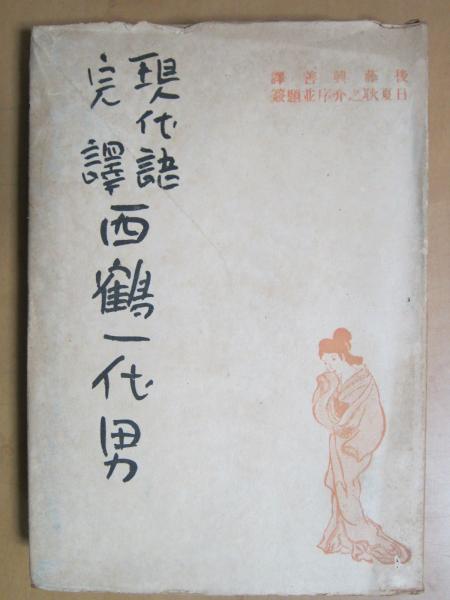 後藤興善譯
日夏耿之介序並題簽
現代語
完譯
西鶴一代男